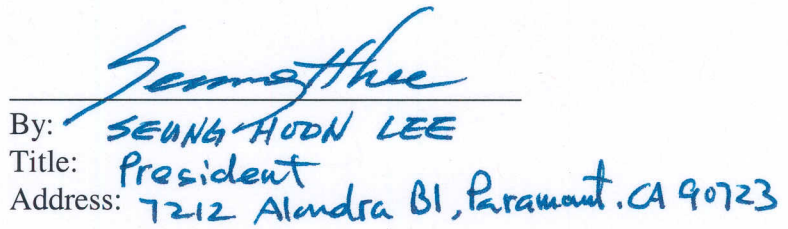 By: SEUNG HOON LEE
Title: President
Address: 7212 Alondra Bl, Paramount, CA 90723